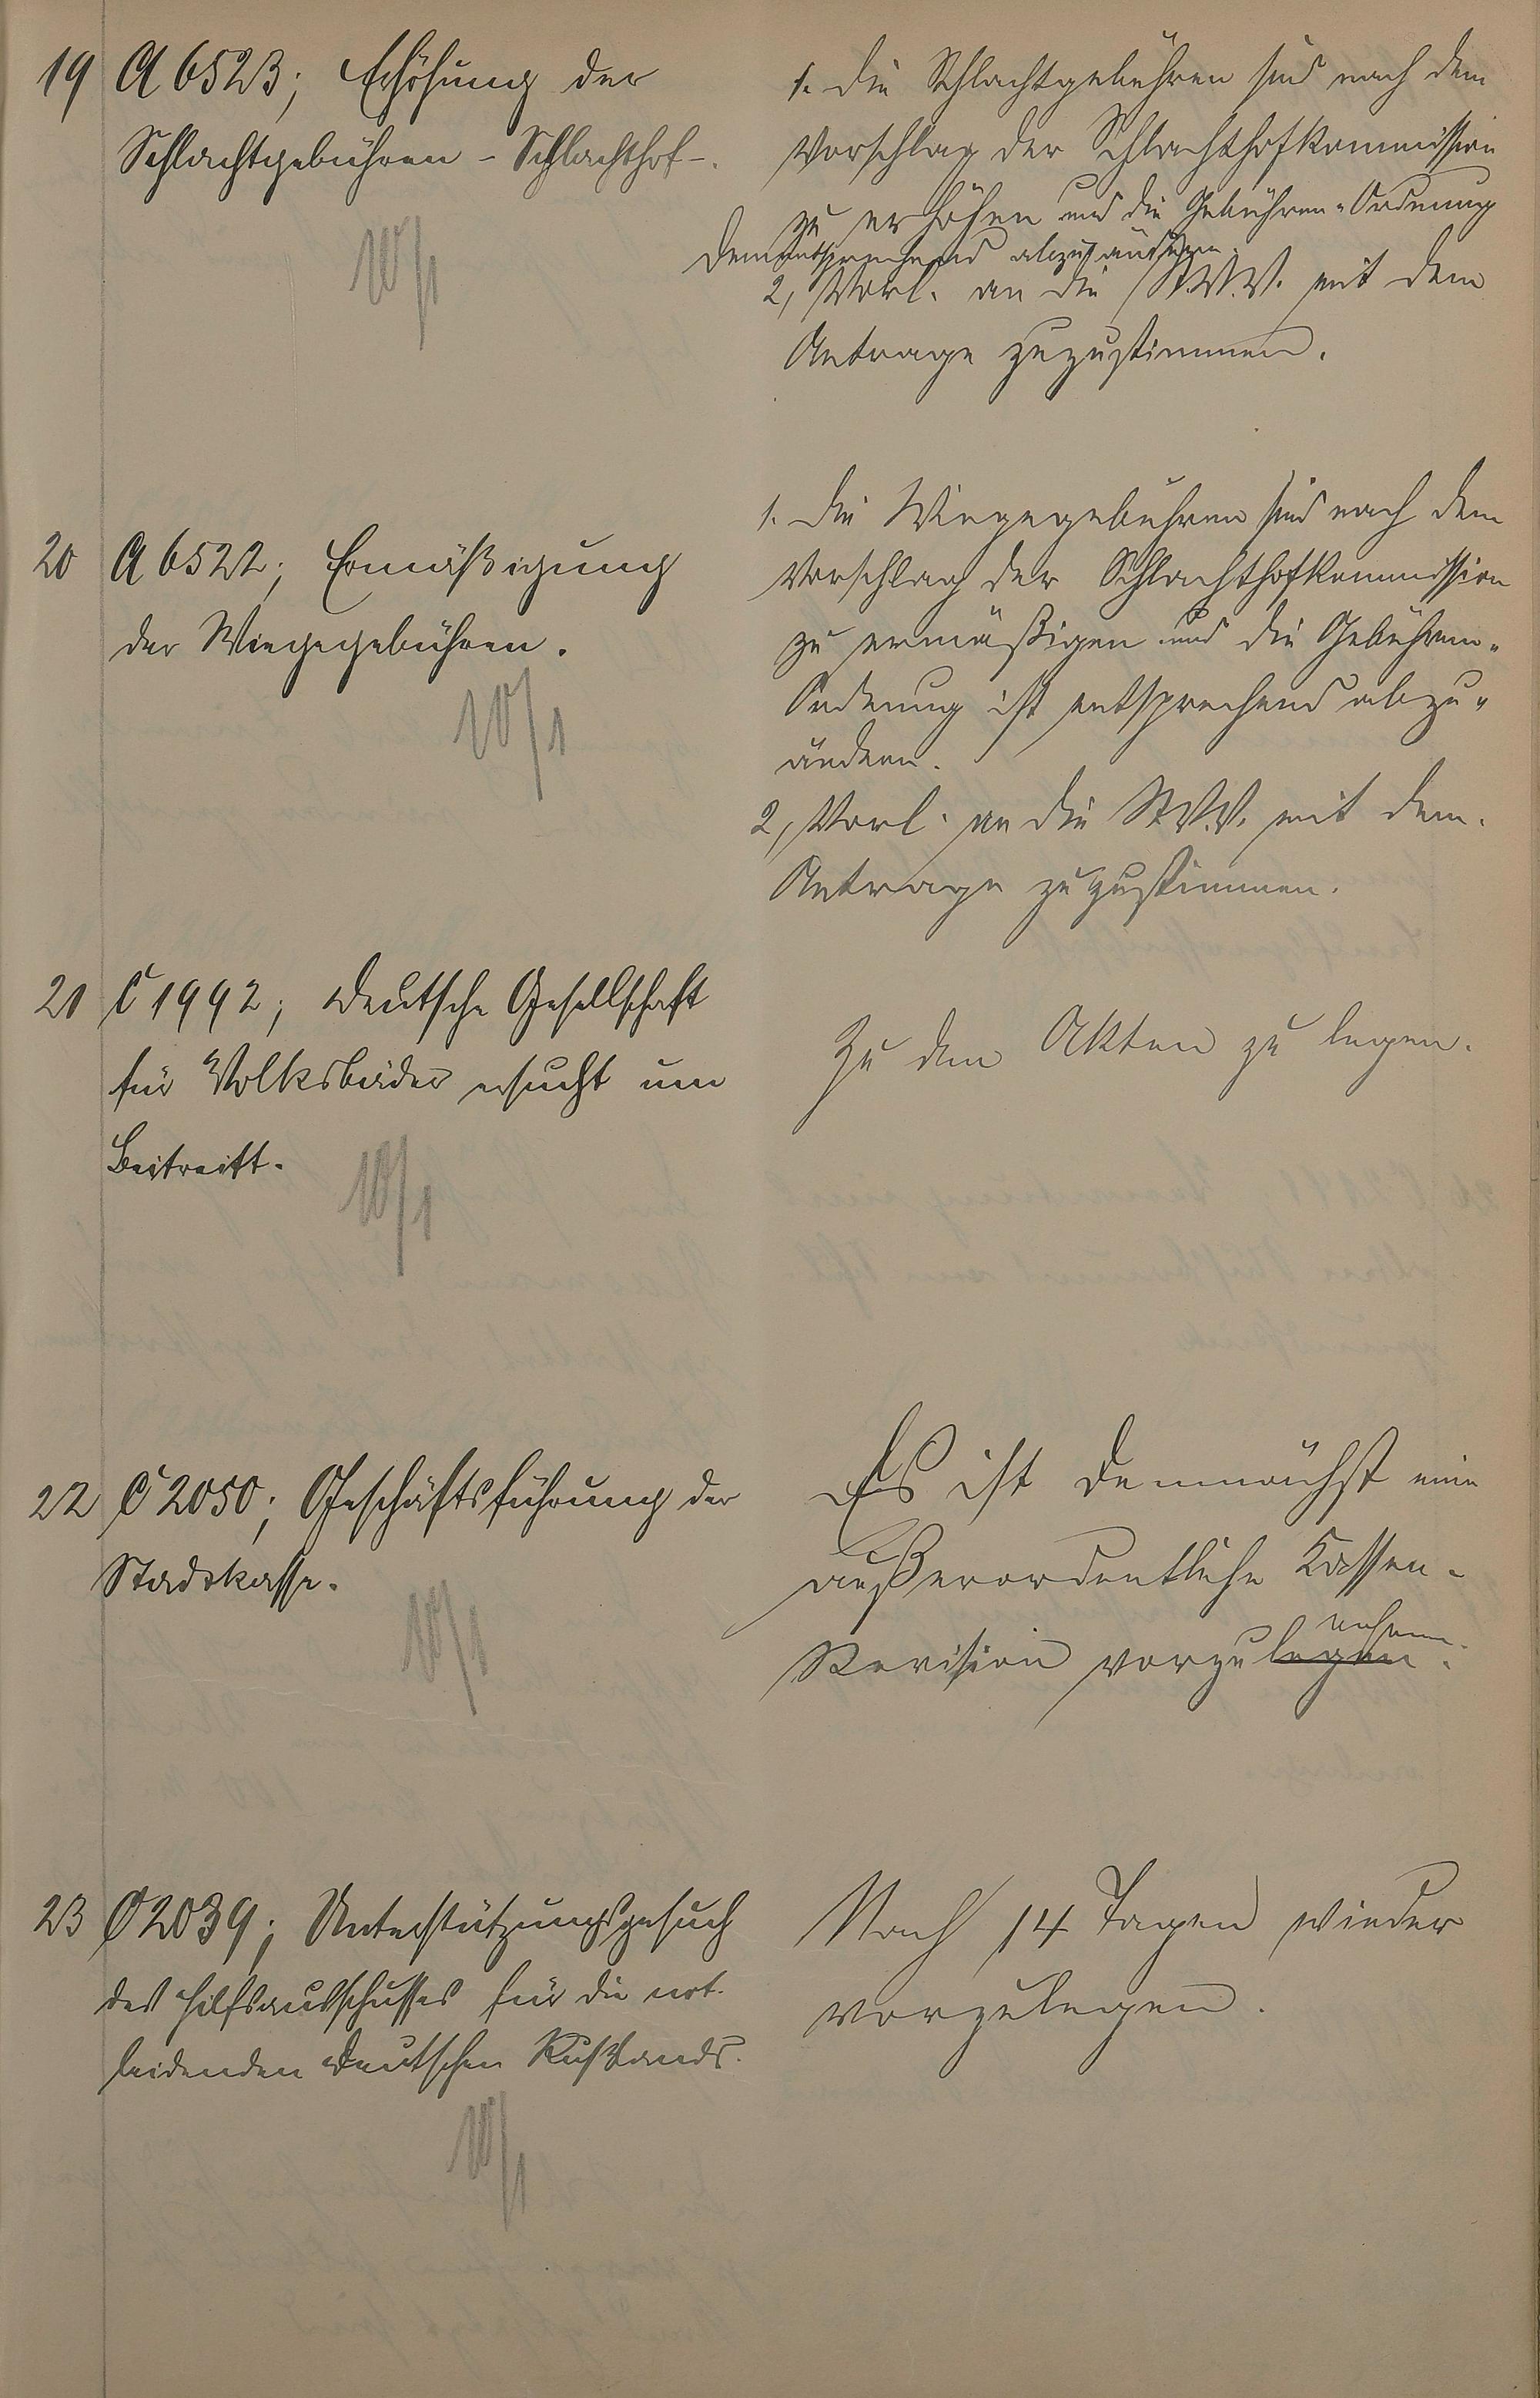 19 A 6523; Erhöhung der
Schlachtgebühren - Schlachthof -.
10/1
1. Die Schlachtgebühren sind nach dem
Vorschlag der Schlachthofkommission
zu erhöhen und die Gebühren-Ordnung
dementsprechend abzuändern.
2, Vorl. an die St.V.V. mit dem
Antrage zuzustimmen.
20 A 6522; Ermäßigung
der Wiegegebühren.
10/1
1. Die Wiegegebühren sind nach dem
Vorschlag der Schlachthofkommission
zu ermäßigen und die Gebühren-
Ordnung ist entsprechend abzu-
ändern.
2, Vorl. an die St.V.V. mit dem
Antrage zuzustimmen.
21 C 1992; Deutsche Gesellschaft
für Volksbäder ersucht um
Beitritt.
10/1
Zu den Akten zu legen.
22 C 2050; Geschäftsführung der
Stadtkasse.
10/1
Es ist demnächst eine
außerordentliche Kassen-
nehmen.
Revision vorzulegen.
23 C 2039; Unterstützungsgesuch
des Hilfsausschusses für die not-
leidenden Deutschen Rußlands.
10/1
Nach 14 Tagen wieder
vorzulegen.